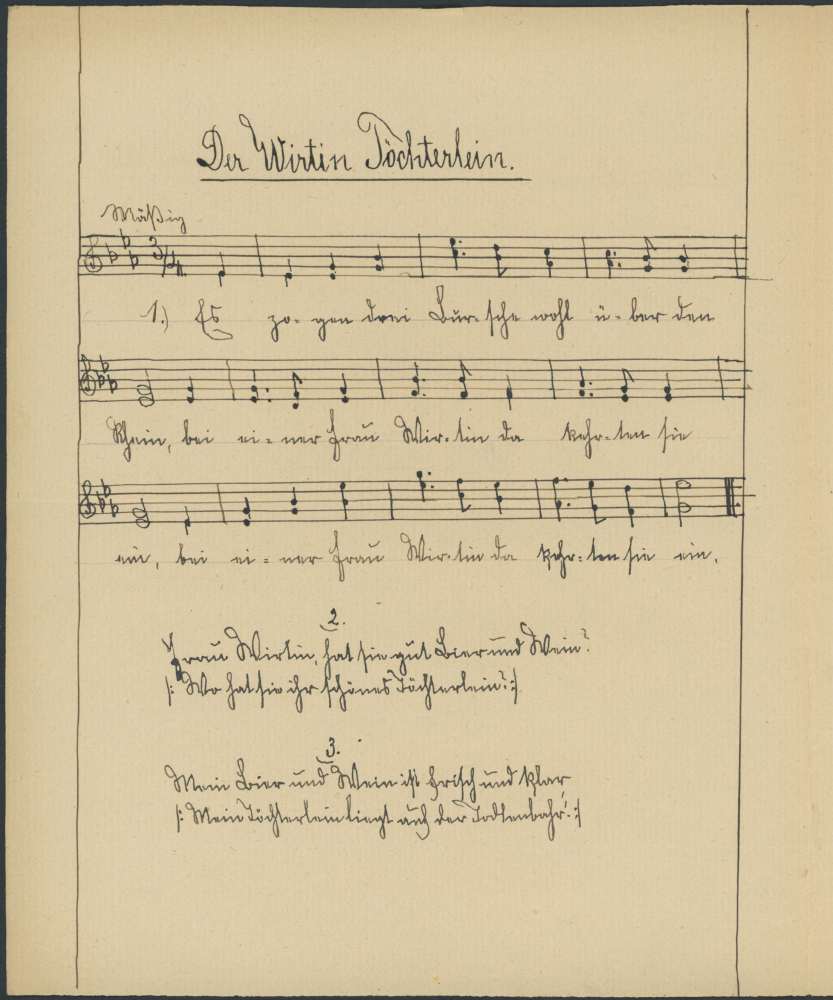 Der Wirtin Töchterlein.
Mäßig
3/4
1.) Es zo- gen drei Bur- sche wohl ü- ber den
Rhein, bei ei- ner Frau Wir- tin da kehr- ten sie
ein, bei ei- ner Frau Wir- tin da kehr- ten sie ein.
2.
Frau Wirtin, hat sie gut Bier und Wein?
|: Wo hat sie ihr schönes Töchterlein? :|
3.
Mein Bier und Wein ist frisch und klar,
|: Mein Töchterlein liegt auf der Todtenbahr'. :|